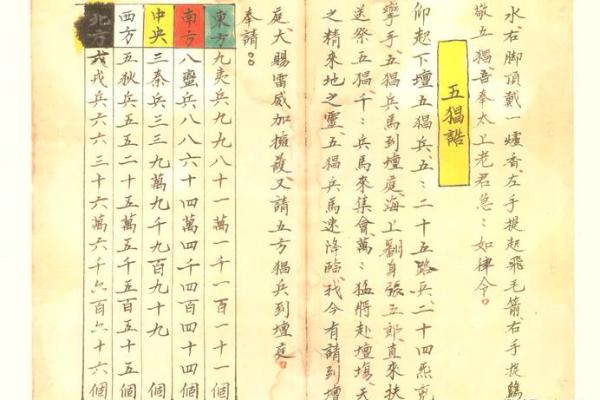 水右脚頂戴一爐香左手提起飛毛箭右手提鷄
敬五猖吾奉太上老君急:如律令。
五猖誥
仰起下壇五猖兵五:二十五路兵二十四
手五猖兵馬到壇庭海上翻身張五郎直來扶
送祭五猖千:兵馬來集會萬:猛將赴壇場天
之精來地之靈五猖兵馬速降臨我今有請到壇
庭大賜雷威加擁護又請五方猖兵到壇庭。
奉請。。
東方九夷兵九九八十一萬一千一百一十一個
南方八蠻兵八八六十四萬四千四百四十四個
中央三秦兵三三九萬九千九百九十九個
西方五狄兵五五二十五萬五千五百五十五個
北方六戎兵六六三十六萬六千六百六十六個